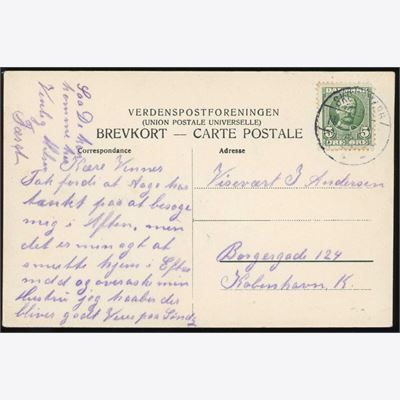 VERDENSPOSTFORENINGEN
(UNION POSTALE UNIVERSELLE)
BREVKORT — CARTE POSTALE
Correspondance
Adresse
DANMARK
5 5
ØRE ØRE
Kære Venner
Tak fordi at Aage har
tænkt paa at besøge
mig i Aften, men
det er min agt at
smutte hjem i Efter
mdd og overaske min
Hustru jeg haaber der
bliver godt Vejr paa Sønd
Visevært J Andersen
Borgergade 124
København, K.
Saa De kan
komme her
Venlig Hilsen